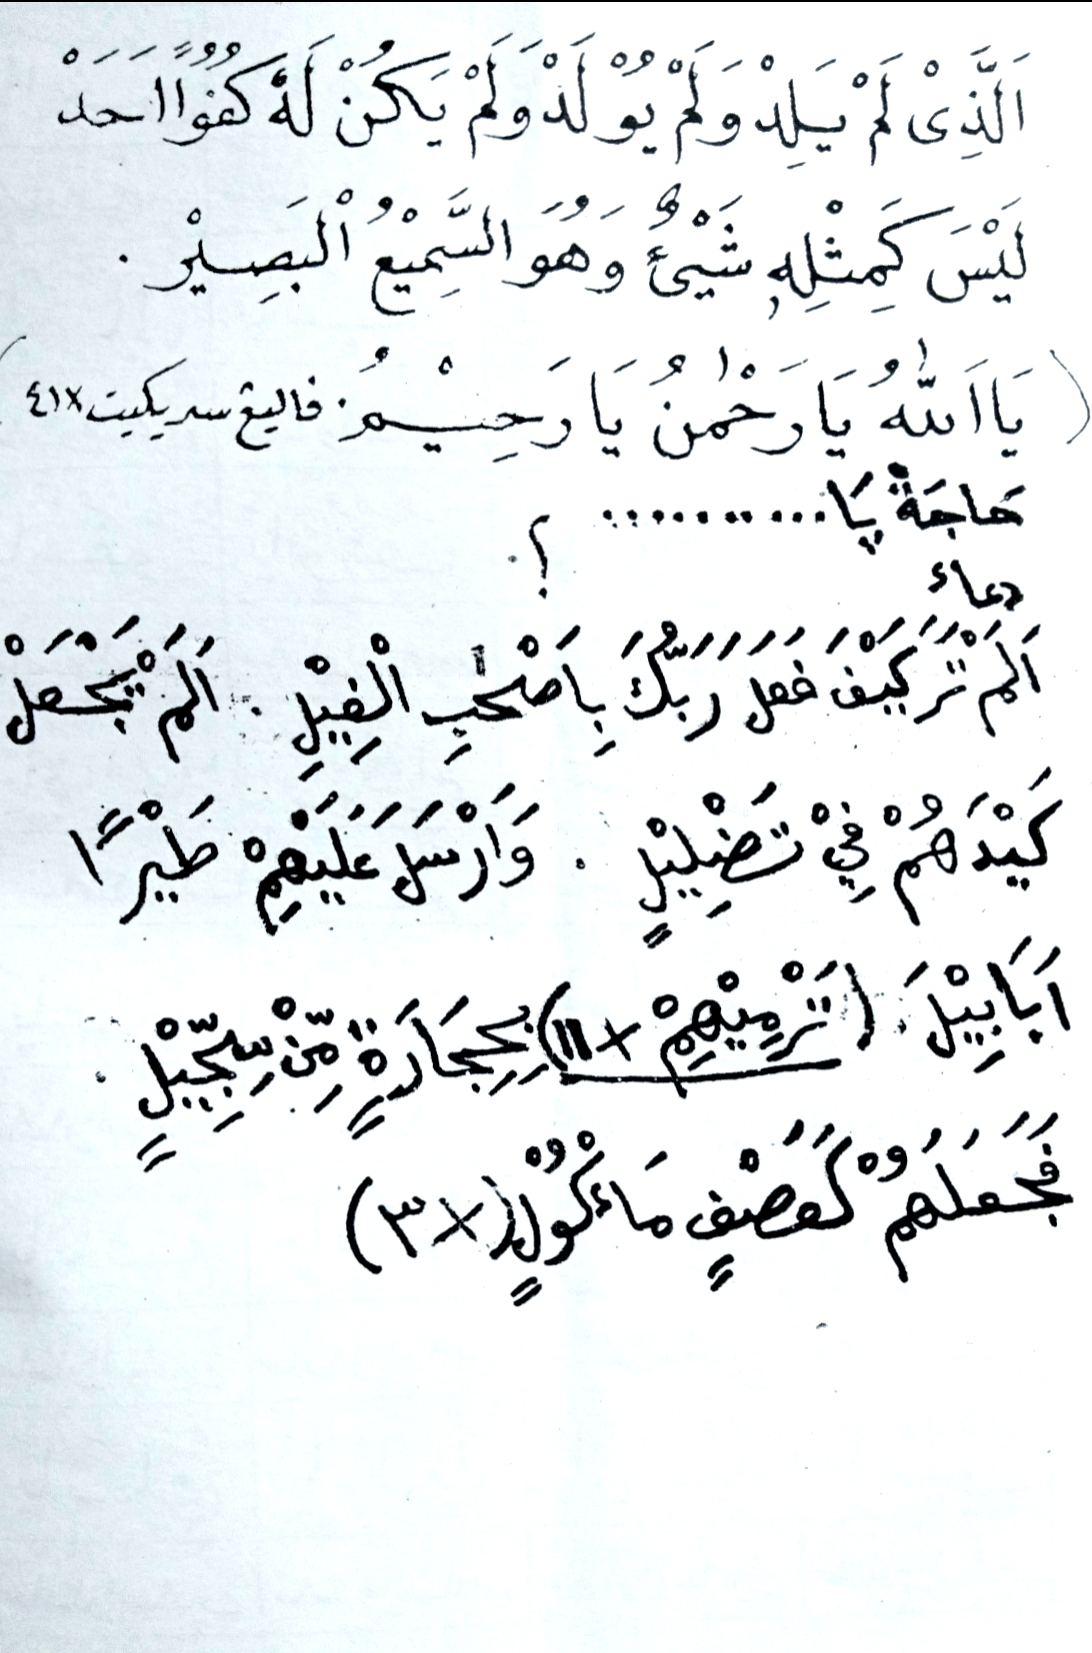 اَلَّذِىْ لَمْ يَلِدْ وَلَمْ يُوْلَدْ وَلَمْ يَكُنْ لَهُ كُفُوًا اَحَدْ
لَيْسَ كَمِثْلِهٖ شَيْئٌ وَهُوَ السَّمِيْعُ الْبَصِيْر .
( يَا اَللّٰهُ يَا رَحْمٰنُ يَا رَحِيْمُ . فاليڠ سديكيت ٤١x )
حَاجَةْ يَا...........؟
دعاء
اَلَمْ تَرَ كَيْفَ فَعَلَ رَبُّكَ بِاَصْحٰبِ الْفِيْلِ . اَلَمْ يَجْعَلْ
كَيْدَهُمْ فِيْ تَضْلِيْلٍ . وَاَرْسَلَ عَلَيْهِمْ طَيْرًا
اَبَابِيْلَ . (تَرْمِيْهِمْ x ١١) بِحِجَارَةٍ مِّنْ سِجِّيْلٍ .
فَجَعَلَهُمْ كَعَصْفٍ مَاءْكُوْلٍ (x ٣)